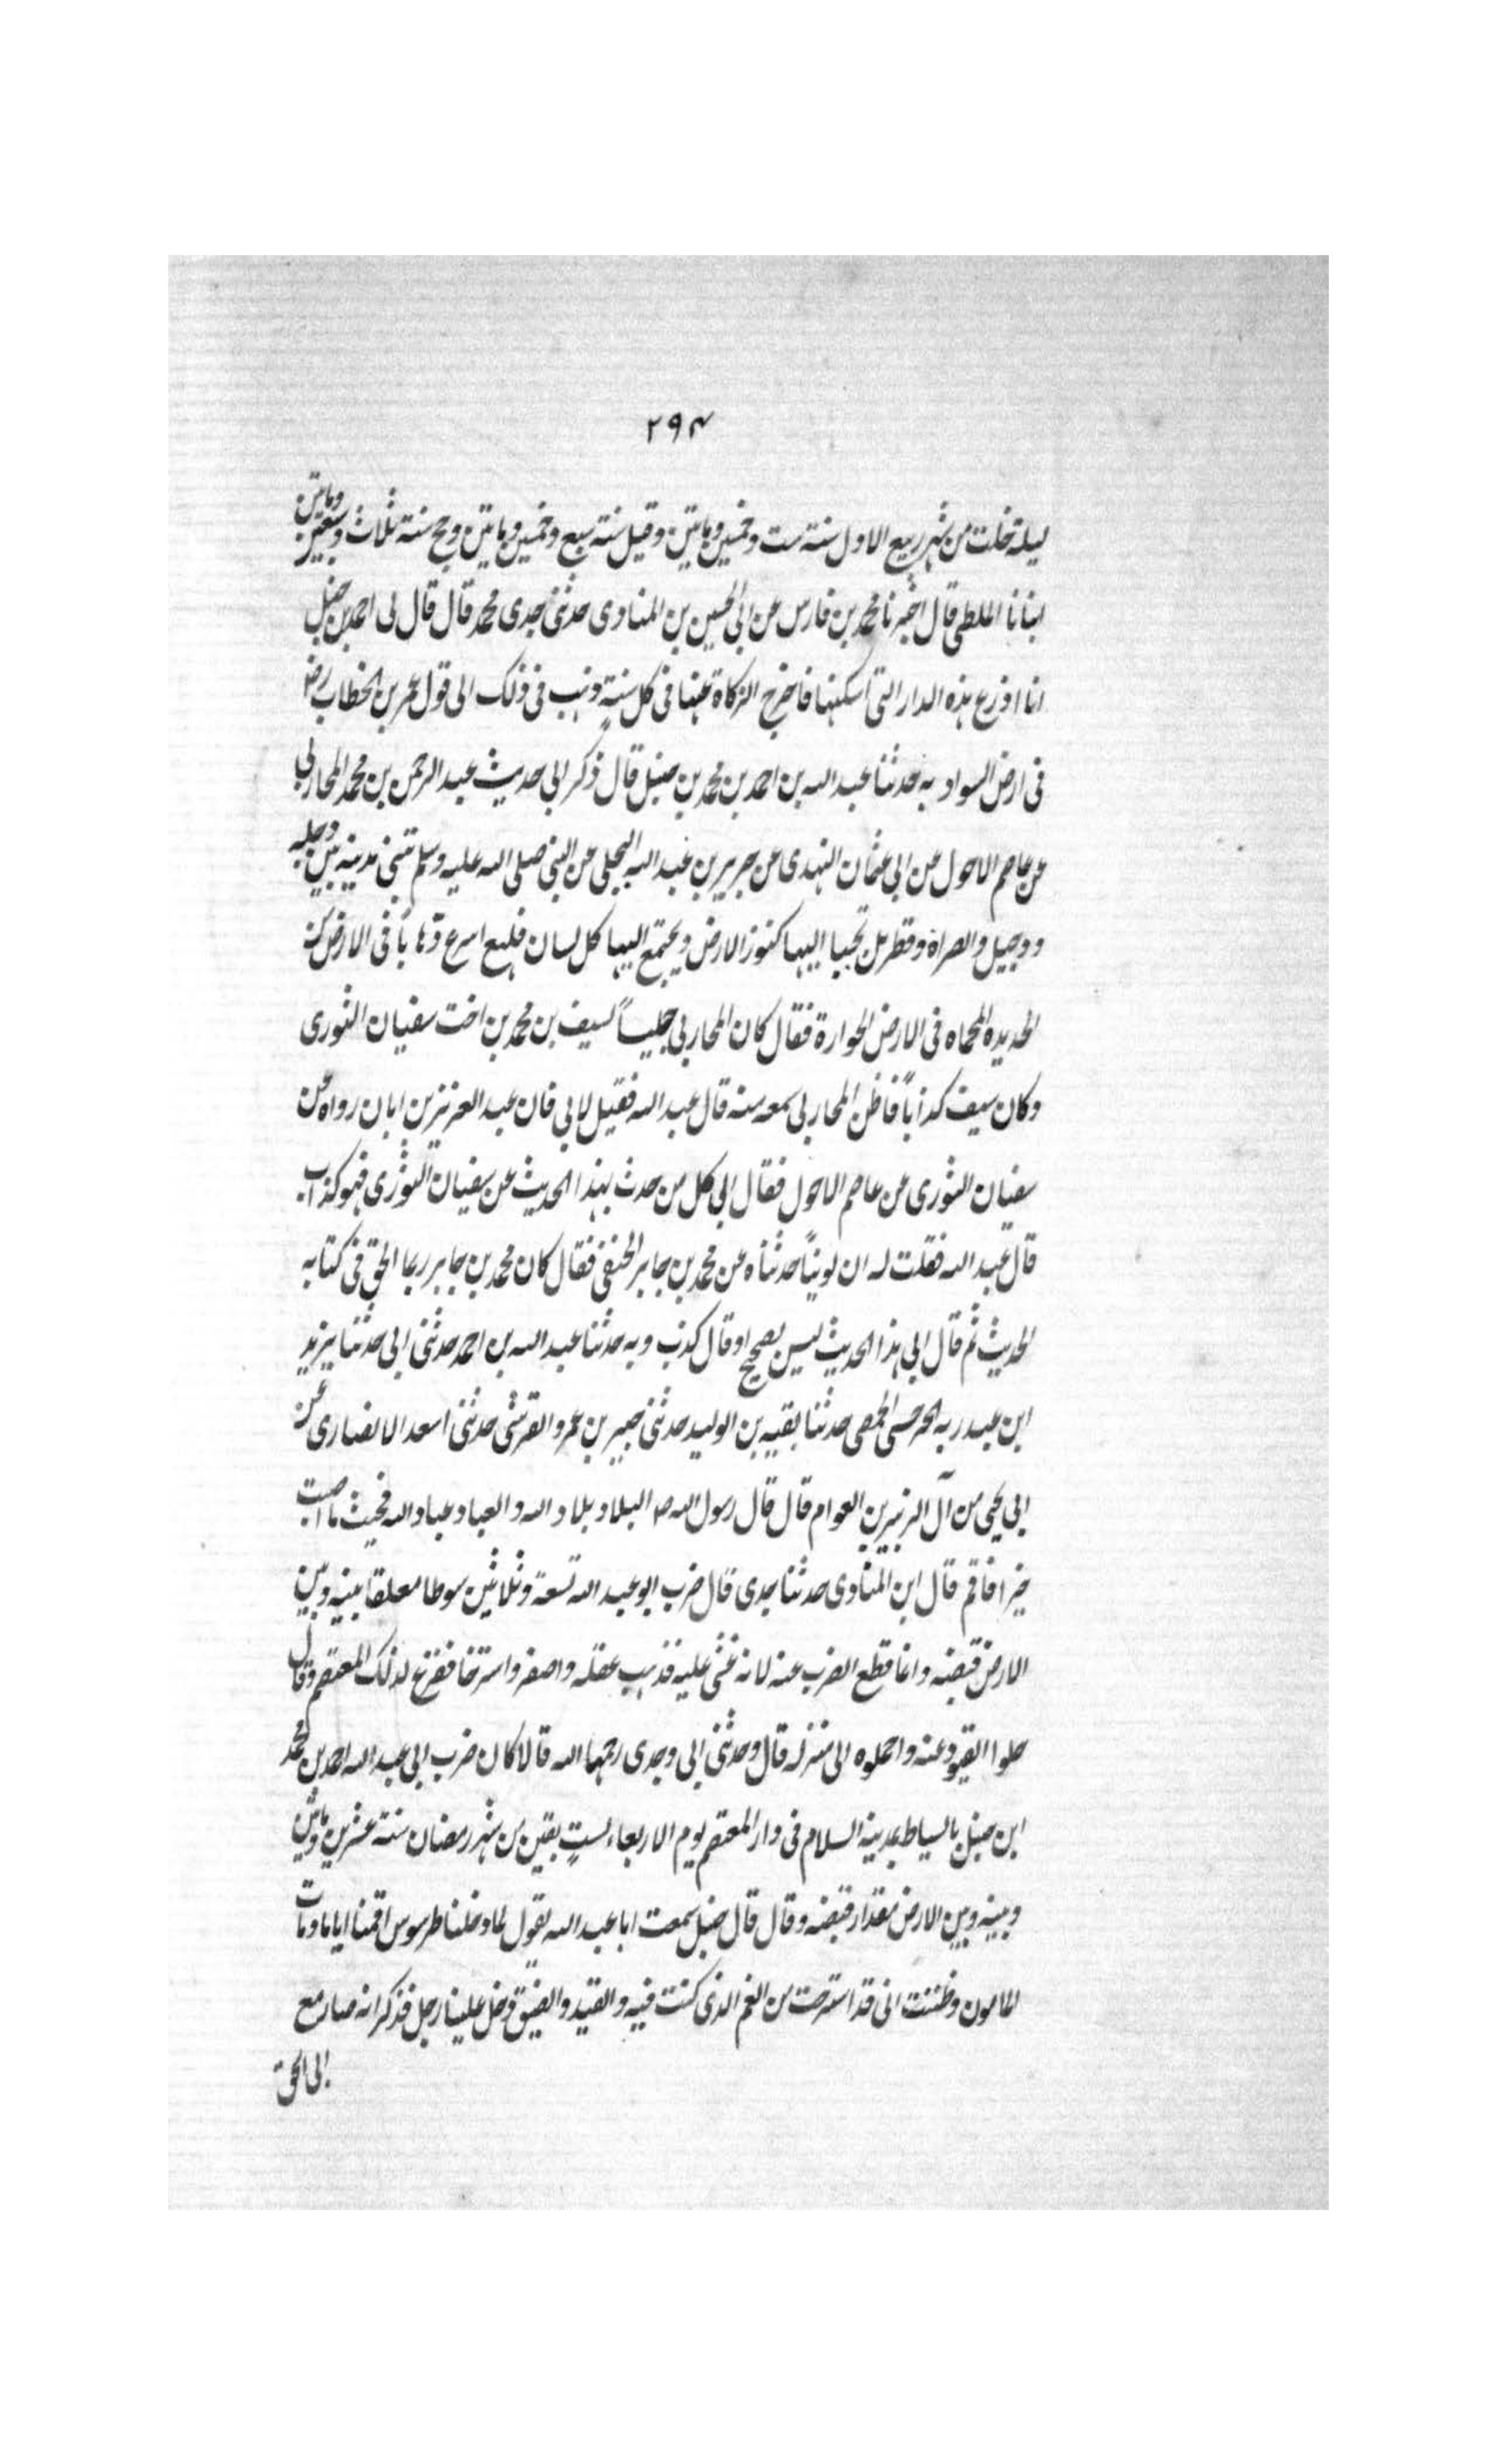 ۲۹۴
ليلة خلت من شهر ربيع الاول سنة ست وخمسين وماتين وقيل سنة سبع وخمسين وماتين وحج سنة ثلاث وسبعين وماتين
انبانا الملطي قال اخبرنا محمد بن فارس عن ابي الحسين بن المناوى حدثنى جدى محمد قال قال لى احمد بن حنبل
انا اذرع هذه الدار التى اسكنها فاخرج الزكاة عنها فى كل سنةٍ وذهب فى ذلك الى قول عمر بن الخطاب رضه
فى ارض السواد به حدثنا عبد الله بن احمد بن محمد بن حنبل قال ذكر ابى حديث عبد الرحمن بن محمد المحاربى
عن عاصم الاحول عن ابى عثمان النهدى عن جرير بن عبد الله البجلى عن النبى صلى الله عليه وسلم تبنى مدينة بين دجلة
ودجيل والصراة وقطربل تجبيا اليها كنوز الارض ويجتمع اليها كل لسان فلهى اسرع ذهابًا فى الارض من
الحديدة المحماه فى الارض الخوارة فقال كان المحاربى جليساً لسيف بن محمد بن اخت سفيان الثورى
وكان سيف كذاباً فاظن المحاربى سمعه منه قال عبد الله فقيل لابى فان عبد العزيز بن ابان رواه عن
سفيان الثورى عن عاصم الاحول فقال ابى كل من حدث بهذا الحديث عن سفيان الثورى فهو كذاب
قال عبد الله فقلت له ان لوينًا حدثناه عن محمد بن جابر الحنفى فقال كان محمد بن جابر ربما الحق فى كتابه
الحديث ثم قال ابى هذا الحديث ليس بصحيح او قال كذب وبه حدثنا عبد الله بن احمد حدثنى ابى حدثنا يزيد
ابن عبد ربه الجرجسى الحمصى حدثنا بقيه بن الوليد حدثنى جبير بن عمرو القرشى حدثنى اسعد الانصارى عن
ابى يحيى من آل الزبير بن العوام قال قال رسول الله صه البلاد بلاد الله والعباد عباد الله فحيث ما اصبت
خيرا فاقم قال ابن المناوى حدثنا جدى قال ضرب ابو عبد الله تسعة وثلاثين سوطا معلقا بينه وبين
الارض قبضه وانما قطع الضرب عنه لانه غشى عليه فذهب عقله واصفر واسترخا ففزع لذلك المعتصم وقال
حلوا القيود عنه واحملوه الى منزله قال وحدثنى ابى وجدى رحمهما الله قالا كان ضرب ابى عبد الله احمد بن محمد
ابن حنبل بالسياط بمدينة السلام فى دار المعتصم يوم الاربعاء لستٍ بقين من شهر رمضان سنة عشرين وماتين
وبينه وبين الارض مقدار قبضه وقال قال حنبل سمعت ابا عبد الله يقول لما دخلنا طرسوس اقمنا اياما ومات
المامون وظننت انى قد استرحت من الغم الذى كنت فيه والقيد والضيق فدخل علينا رجل فذكر انه صار مع
ابى اسحق